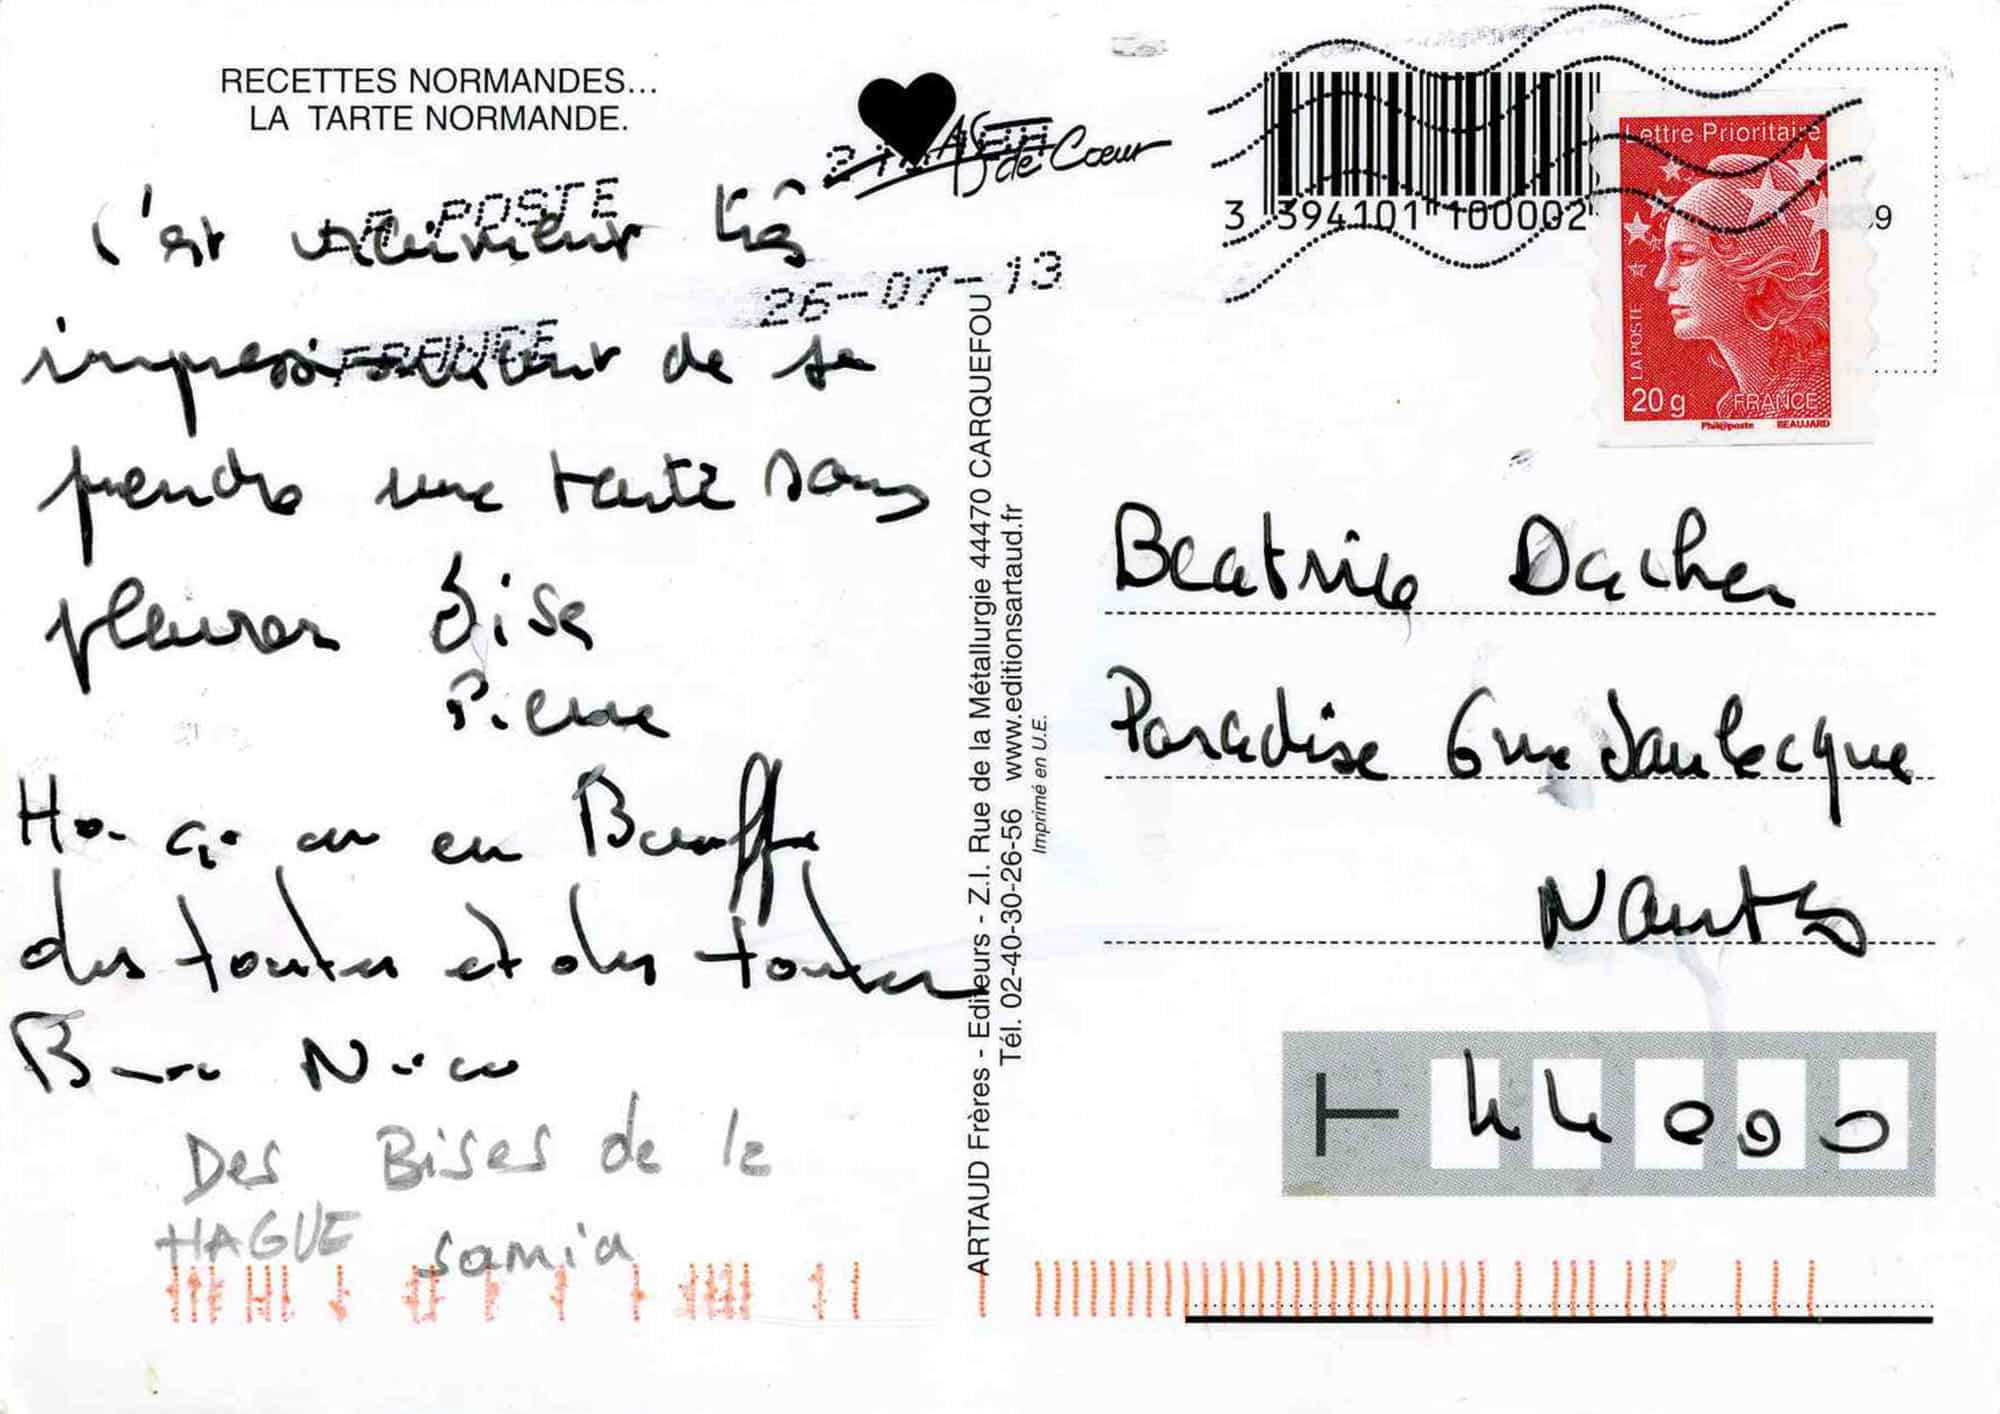 RECETTES NORMANDES...
LA TARTE NORMANDE.
AS de Cœur
3 394101 100002
Lettre Prioritaire
LA POSTE
20 g FRANCE
Phil@poste BEAUJARD
LA POSTE
26-07-13
FRANCE
C'est vraiment très
impressionnant de se
prendre une tarte sans
pleurer Bise
Pierre
en Bouffe
des toutes et des toutes
Nico
Des Bises de la
HAGUE samia
ARTAUD Frères - Editeurs - Z.I. Rue de la Métallurgie 44470 CARQUEFOU
Tél. 02-40-30-26-56 www.editionsartaud.fr
Imprimé en U.E.
Beatrice Dacher
Paradise 6 rue Sanlecque
Nantes
44000